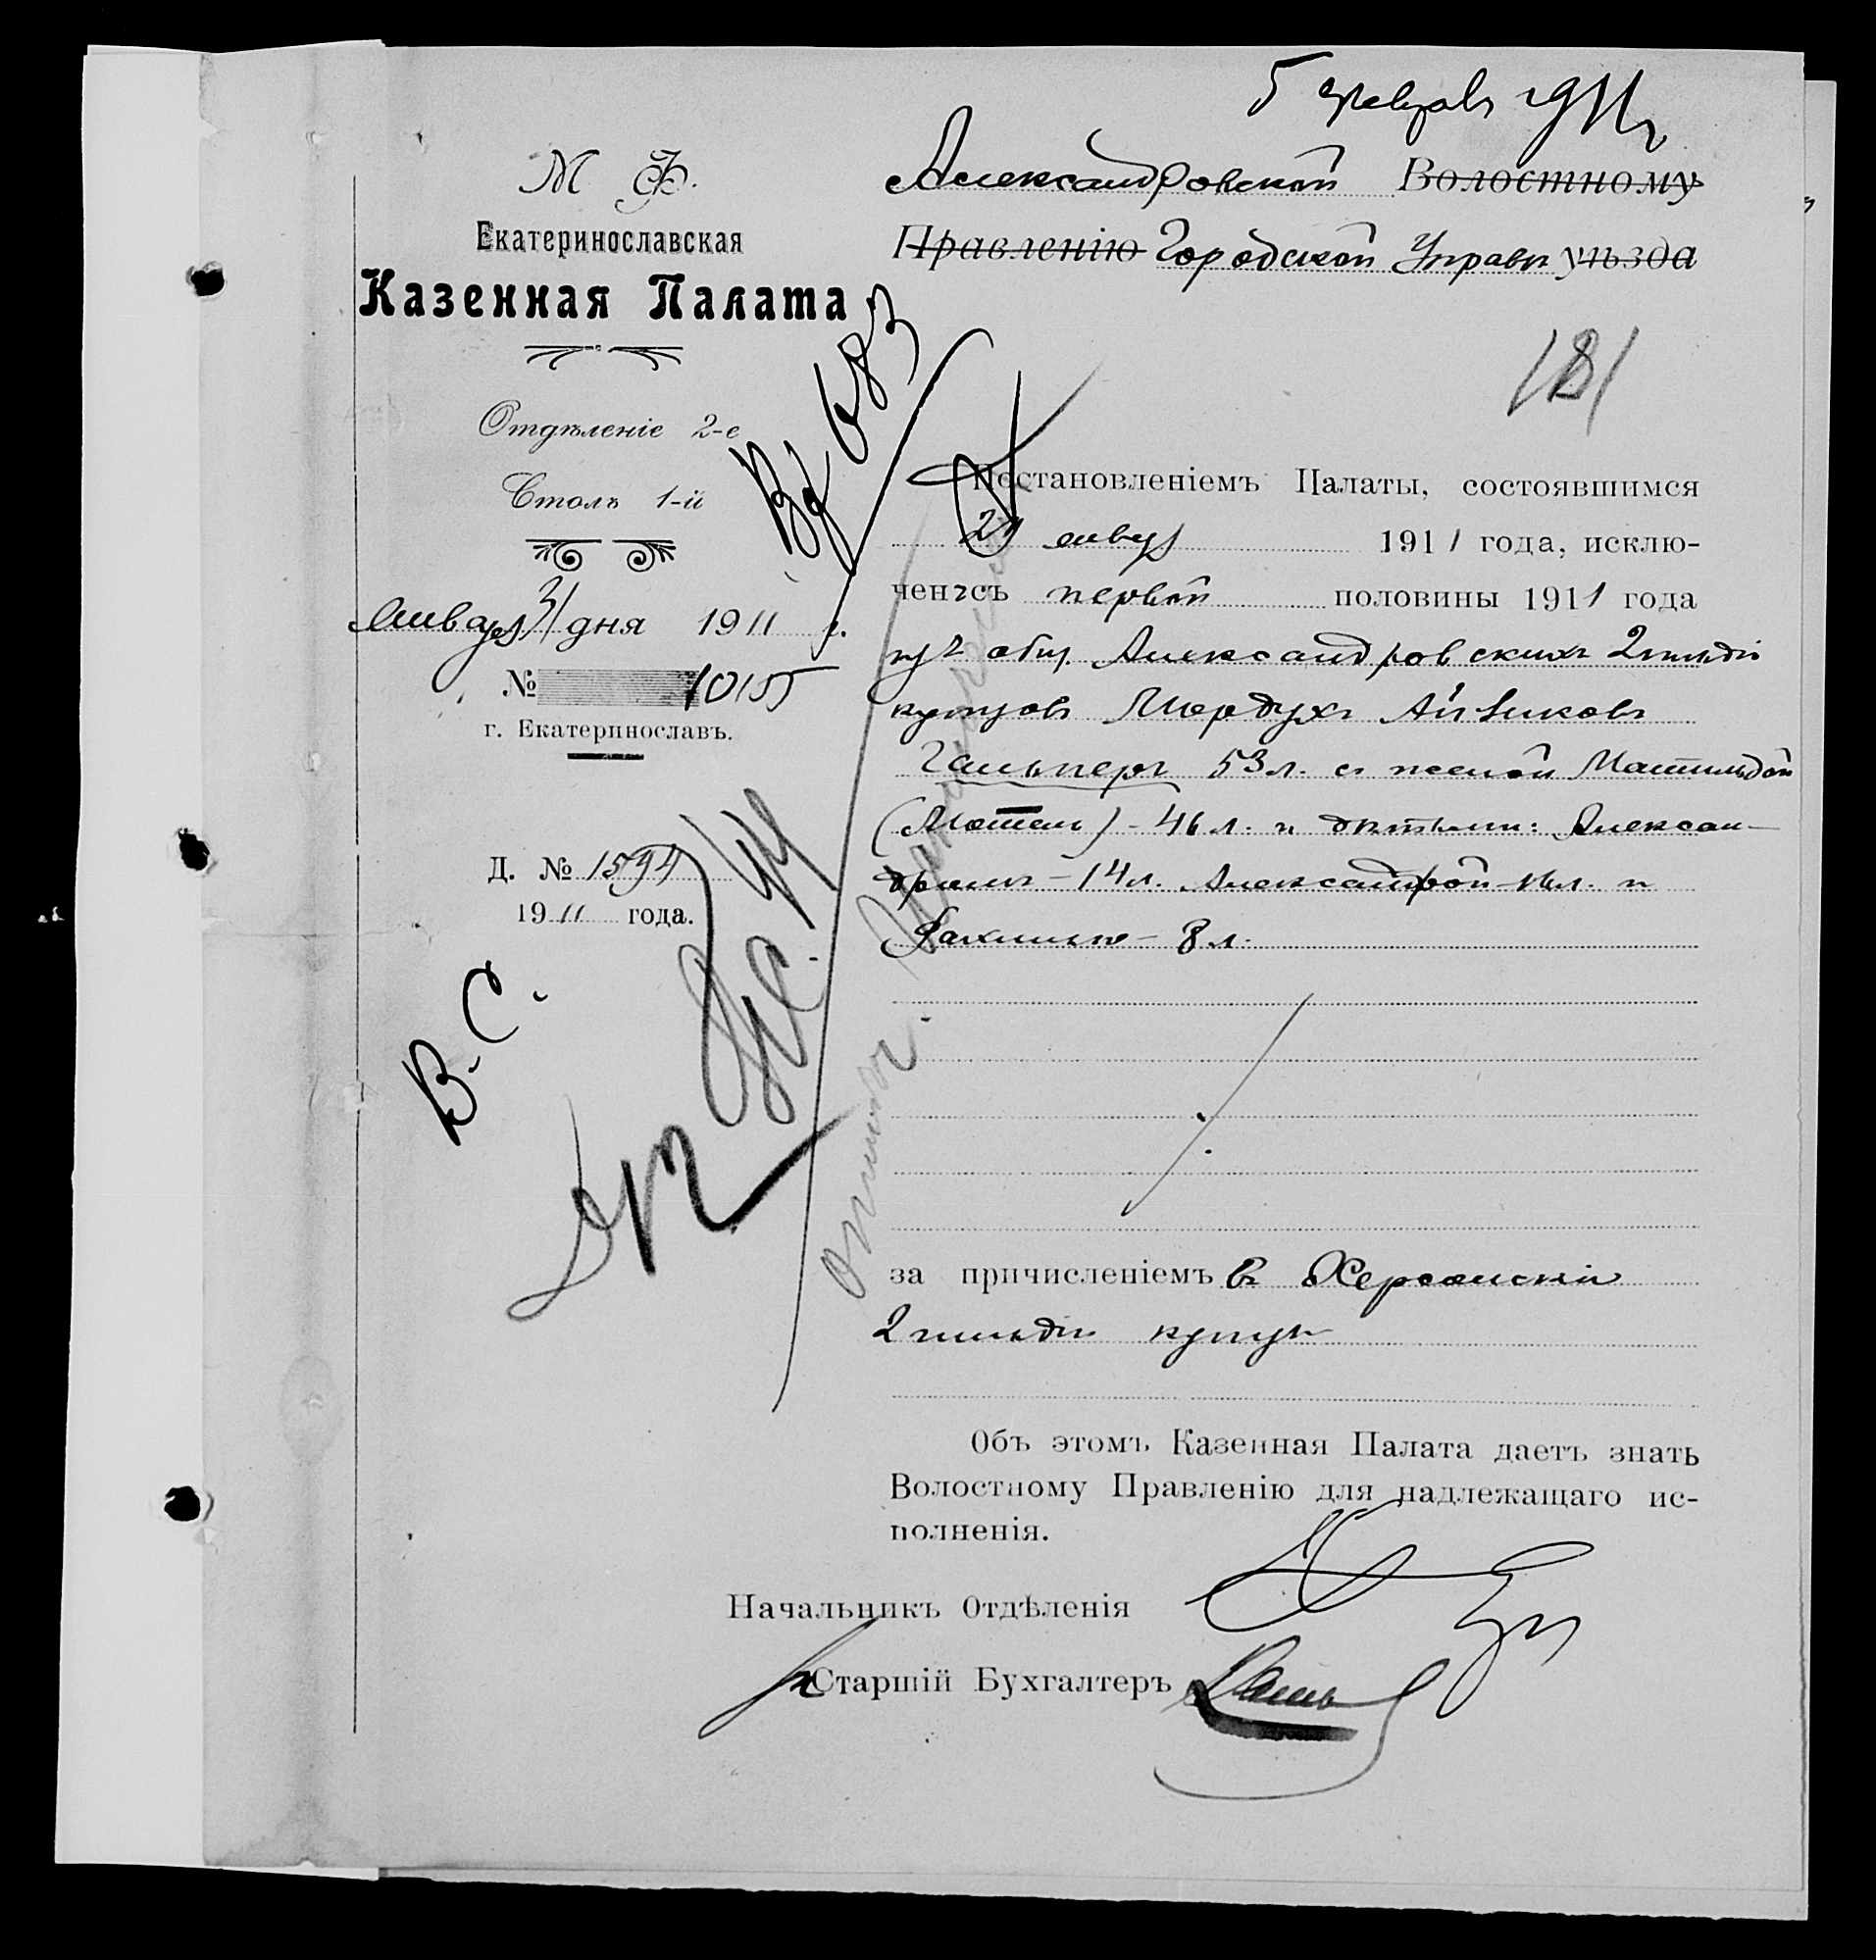 5 февраля 1911 г.
Александровской Волостному
Правленію Городской Управѣ уѣзда
М Ф.
Екатеринославская
Казенная Палата
Отдѣленіе 2-е
Столъ 1-й
Января 31 дня 1911 г.
№ 10155
г. Екатеринославъ.
Д. № 1594
1911 года.
В. С.
Вх 683
181
Постановленіемъ Палаты, состоявшимся
29 январ 1911 года, исклю-
ченъ съ первой половины 1911 года
изъ общ. Александровскихъ 2 гильдіи
купцовъ Мордухъ Айзиковъ
Гальперъ 53 л. съ женой Матильдой
(Мотель) - 46 л. и дѣтьми: Алексан-
дромъ - 14 л. Александрой - 16 л. и
Рахилью - 8 л.
за причисленіемъ въ Херсонскіе
2 гильдіи купцы
Объ этомъ Казенная Палата даетъ знать
Волостному Правленію для надлежащаго ис-
полненія.
Начальникъ Отдѣленія
Старшій Бухгалтеръ